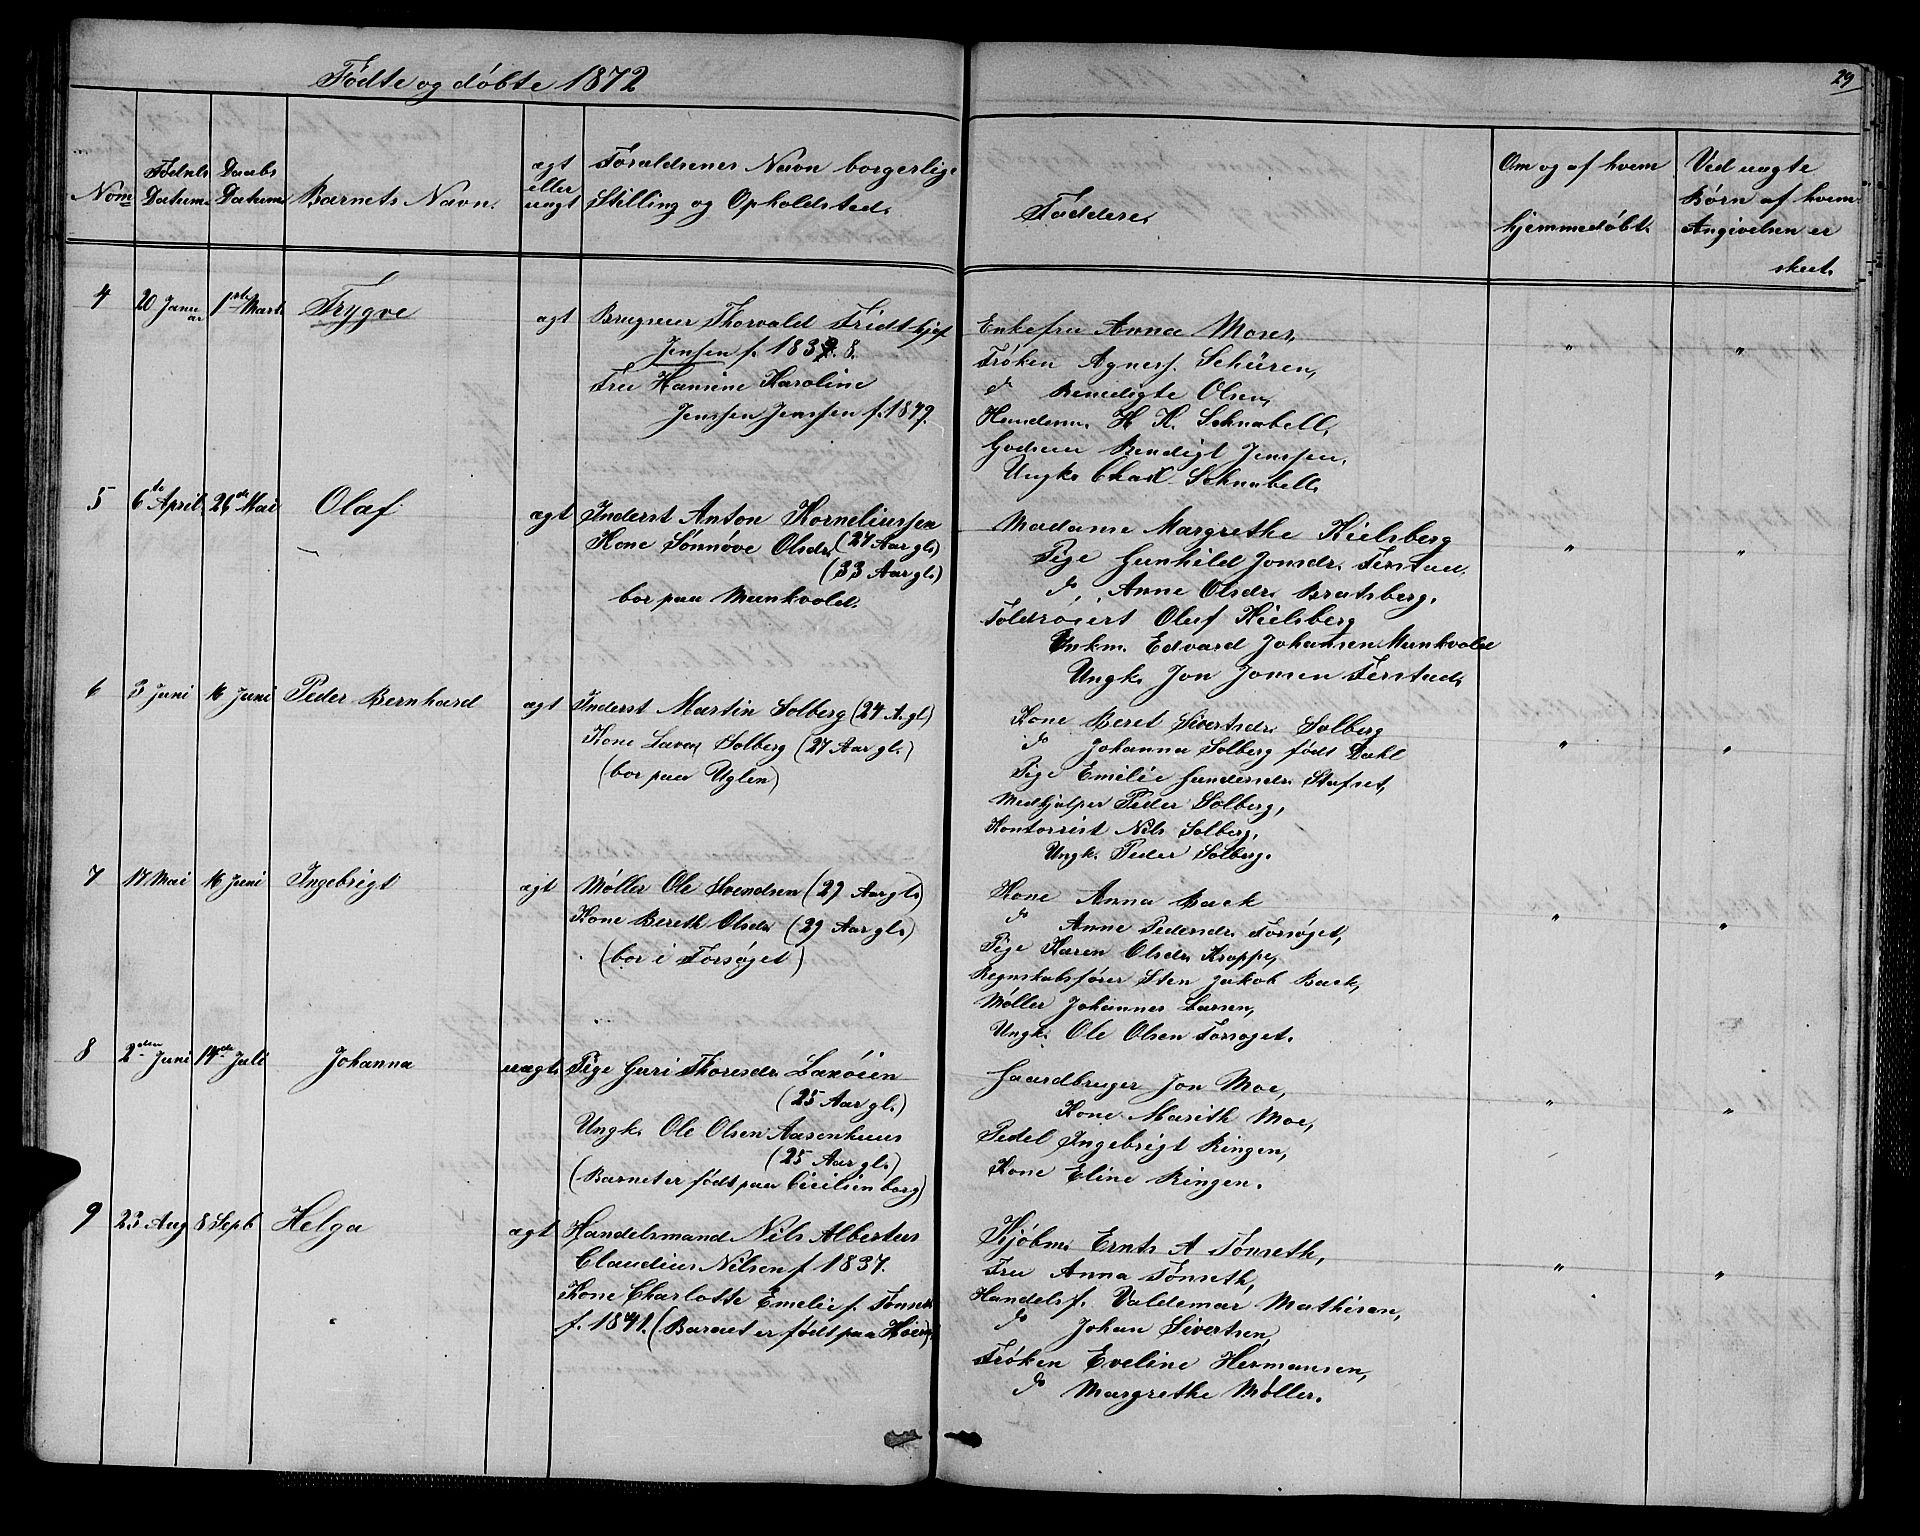 Fødte og døbte 1872
29
Nom
Fødsels Datum.
Daabs Datum.
Barnets Navn.
ægt eller uægt
Foraldrenes Navn borgerlige
Stilling og Opholdsted.
Faddere,
Om og af hvem
hjemmedøbt.
Ved uægte
Børn af hvem
Angivelsen er
skeet.
4 20 Januar 1ste Marts Trygve ægt Brugseier Thorvald Fridthjof
Jenssen f. 1838.
Fru Hansine Karoline
Jenssen Jenssen f. 1849.
Enkefru Anna Moses,
Frøken Agnes f. Schüren,
do Benedigte Olsen,
Handesm. H. K. Schnabell,
Godseier Bendigt Jenssen,
Ungk. Chasl Schnabell,
" "
5 6te April 26de Mai Olaf ægt Inderst Anton Korneliussen
Kone Sønnøve Olsdr. (27 Aar gl.)
(33 Aar gl.)
bor paa Munkvold.
Madame Margrethe Kielsberg
Pige Gunhild Jonsdr. Ferstad,
do, Anne Olsdr. Bratsberg,
Toldrøiert Oluf Kielsberg
Unkm. Edvard Johansen Munkvold
Ungk. Jon Jonsen Ferstad,
" "
6 3 Juni 16 Juni Peder Bernhard ægt Inderst Martin Solberg (24 A. gl.)
Kone Lava Solberg (27 Aar gl.)
(bor paa Uglen)
Kone Beret Sivertsdr. Solberg
do Johanna Solberg født Dahl
Pige Emilie Gundersdr. Stafset,
Medhjelper Peder Solberg,
Kontorrist Nils Solberg,
Ungk. Peder Solberg.
" "
7 17 Mai 16 Juni Ingebrigt ægt Møller Ole Svendsen (29 Aar gl.)
Kone Bereth Olsdr (29 Aar gl.)
(bor i Forsøget)
Kone Anna Back
do Anne Pedersdr. Forsøget,
Pige Karen Olsdr. Kroppe,
Regnskabsfører Sten Jakob Back,
Møller Johannes Larsen,
Ungk. Ole Olsen Forsøget.
" "
8 2den Juni 14de Juli Johanna uægt. Pige Guri Thoresdr. Lanøien
(25 Aar gl.)
Ungk. Ole Olsen Aasenhuus
(25 Aar gl.)
(Barnet er født paa Cicilienborg)
Gaardbruger Jon Moe,
Kone Marith Moe,
Pedel Ingebrigt Ringen,
Kone Eline Ringen.
" "
9 23 Aug 8 Septb Helga ægt Handelsmand Nils Albertus
Claudius Nilsen f. 1837.
Kone Charlotte Emelie f. Tønseth
f. 1841. (Barnet er født paa Høien)
Kjøbm. Ernts A Tønseth,
Fru Anna Tønseth,
Handelsf. Valdemar Mathisen,
do Johan Sivertsen,
Frøken Eveline Hermansen,
do Margrethe Møller.
" "